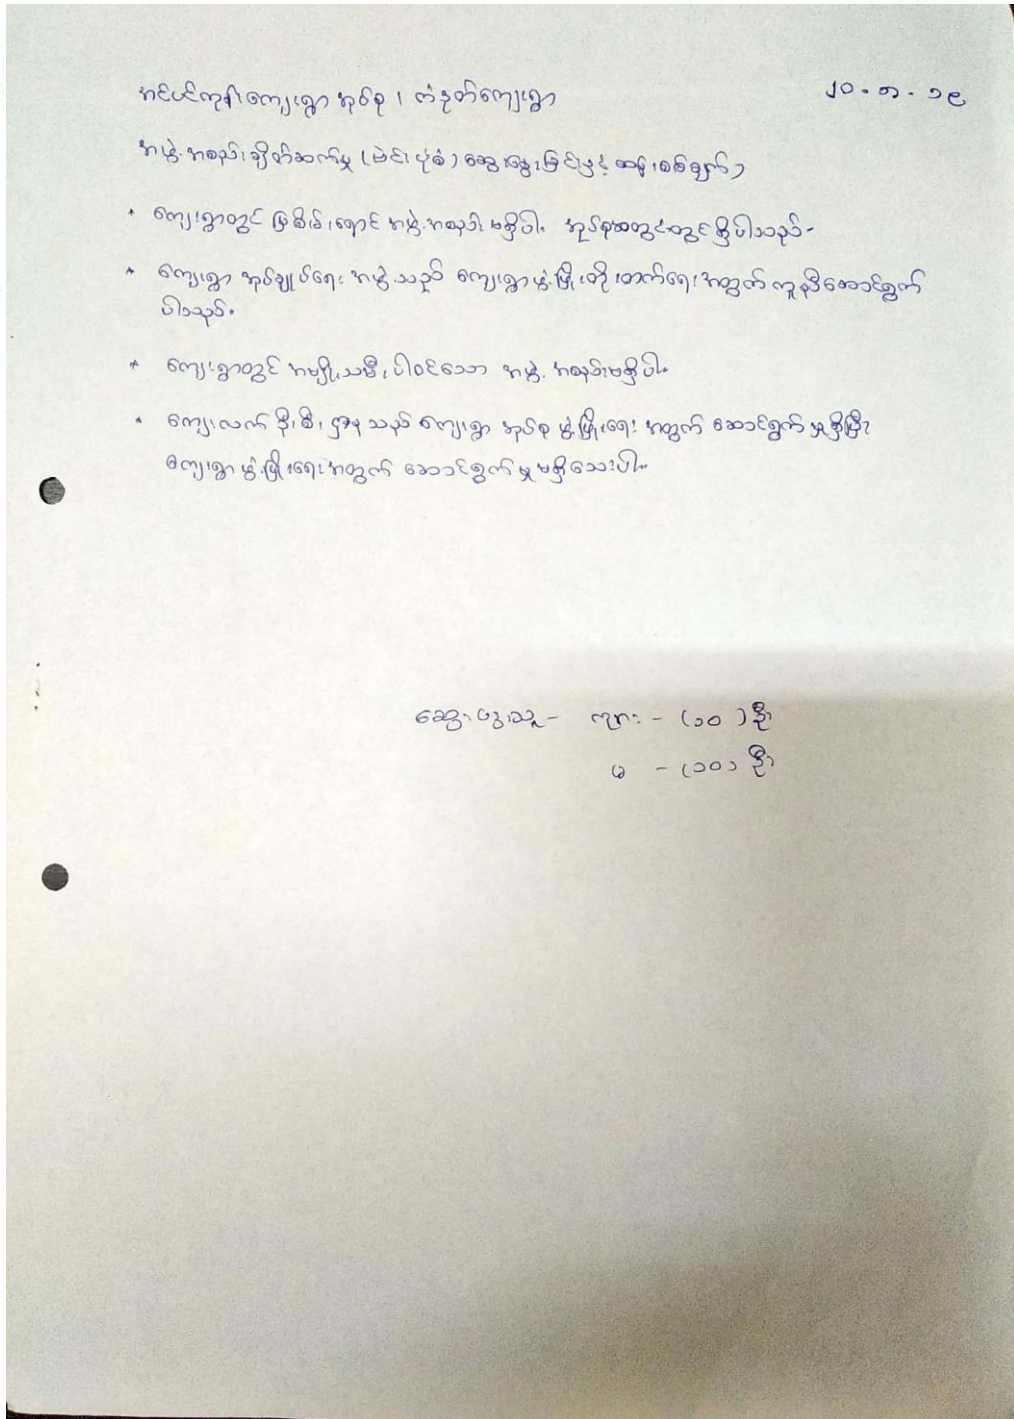 အင်ပင်ကုန်းကျေးရွာ အုပ်စု ၊ ကံနုတ်ကျေးရွာ ၂၀.၈.၁၉
အဖွဲ့အစည်းချိတ်ဆက်မှု (ဗဲင်းပုံစံ) ဆွေးနွေးခြင်းနှင့် ဆန်းစစ်ချက် )
* ကျေးရွာတွင် မြစိမ်းရောင် အဖွဲ့အစည်း မရှိပါ။ အုပ်စုအတွင်းတွင်ရှိပါသည်။
* ကျေးရွာ အုပ်ချုပ်ရေး အဖွဲ့သည် ကျေးရွာဖွံ့ဖြိုးတိုးတက်ရေး အတွက် ကူညီဆောင်ရွက်
ပါသည်။
* ကျေးရွာတွင် အမျိုးသမီးပါဝင်သော အဖွဲ့ အစည်းမရှိပါ။
* ကျေးလက် ဦးစီး ဌာန သည် ကျေးရွာ အုပ်စု ဖွံ့ဖြိုးရေး အတွက် ဆောင်ရွက် မှုရှိပြီး
ကျေးရွာ ဖွံ့ဖြိုးရေးအတွက် ဆောင်ရွက် မှု မရှိသေးပါ။
ဆွေးနွေးသူ - ကျား - (၁၀) ဦး
မ - (၁၀) ဦး